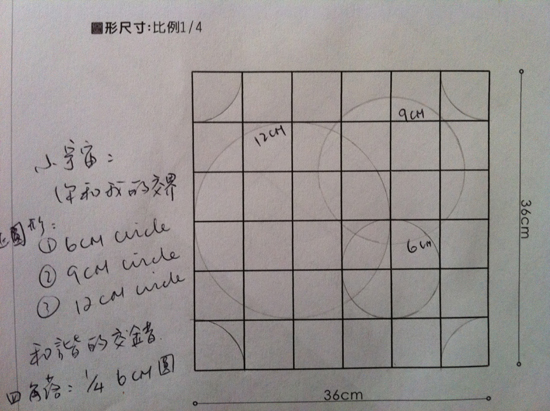 圖形尺寸:比例1/4
小宇宙:
你和我的交界
圓形:
① 6CM circle
② 9CM circle
③ 12CM circle
和諧的交錯
四角落: 1/4 6CM圓
12CM
9CM
6CM
36cm
36cm